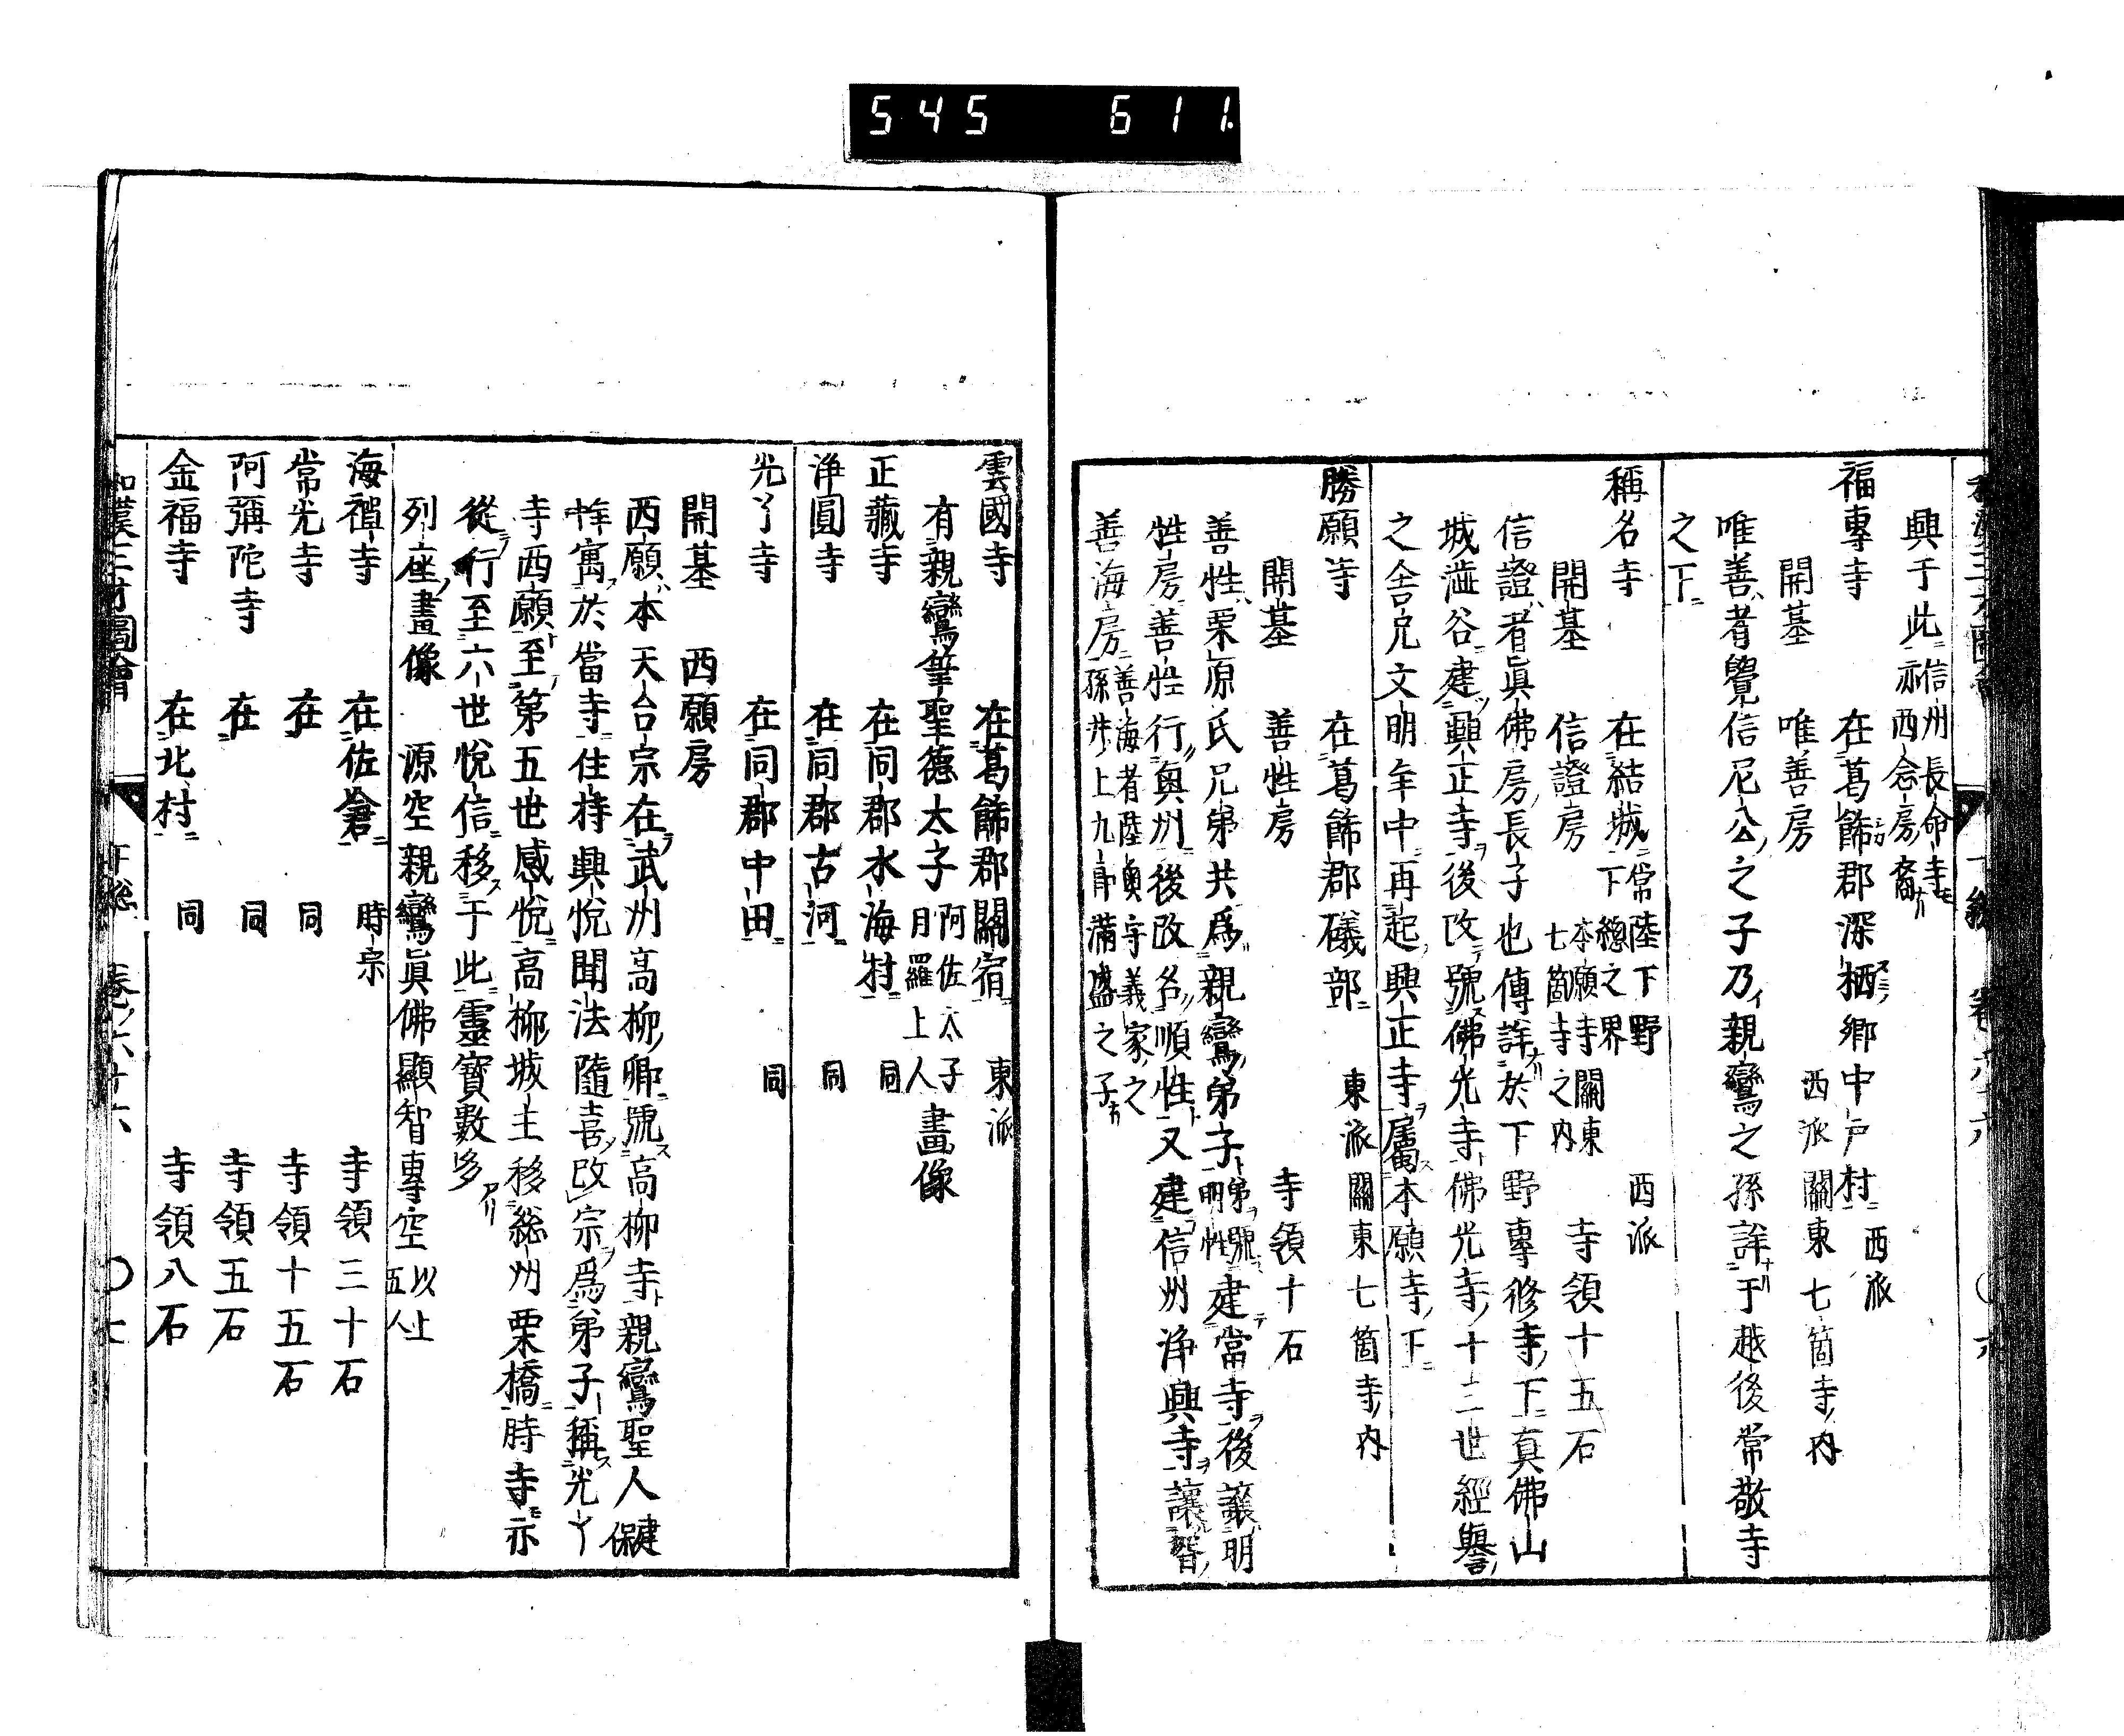 545 611.
興于此信州長命寺亦西念房裔
福專寺 在葛餝郡深栖鄉中戸村 西派
開基 唯善房 西派關東七箇寺内
唯善者覺信尼公之子乃親鸞之孫詳于越後常敬寺
之下
稱名寺 在結城常陸下野下總之界 西派
開基 信證房 本願寺關東七箇寺之内 寺領十五石
信證者眞佛房長子也傳詳於下野專修寺下真佛山
城澁谷建興正寺後改號佛光寺佛光寺十二世經譽
之舎兄文明年中再起興正寺屬本願寺下
勝願寺 在葛餝郡礒部 東派關東七箇寺内
開基 善性房 寺領十石
善性栗原氏兄弟共爲親鸞弟子弟號明性建當寺後讓明
性房善性行奥州後改名順性又建信州浄興寺讓智
善海房善海者陸奥守義家之孫井上九郎滿盛之子
雲國寺 在葛餝郡關宿 東派
有親鸞筆聖德太子阿佐太子月羅上人畫像
正藏寺 在同郡水海村 同
浄圓寺 在同郡古河 同
光了寺 在同郡中田 同
開基 西願房
西願本天台宗在武州高柳郷號高柳寺親鸞聖人建保
年寓於當寺住持興悅聞法隨喜改宗爲弟子稱光了
寺西願至第五世感悅高柳城主移総州栗橋時寺亦
從行至六世悅信移于此靈寶數多
列座畫像 源空親鸞眞佛顯智專空以上五人
海禪寺 在佐倉 時宗 寺領三十石
常光寺 在 同 寺領十五石
阿彌陀寺 在 同 寺領五石
金福寺 在北村 同 寺領八石
和漢三才圖會 下総 卷ノ六十六 〇七